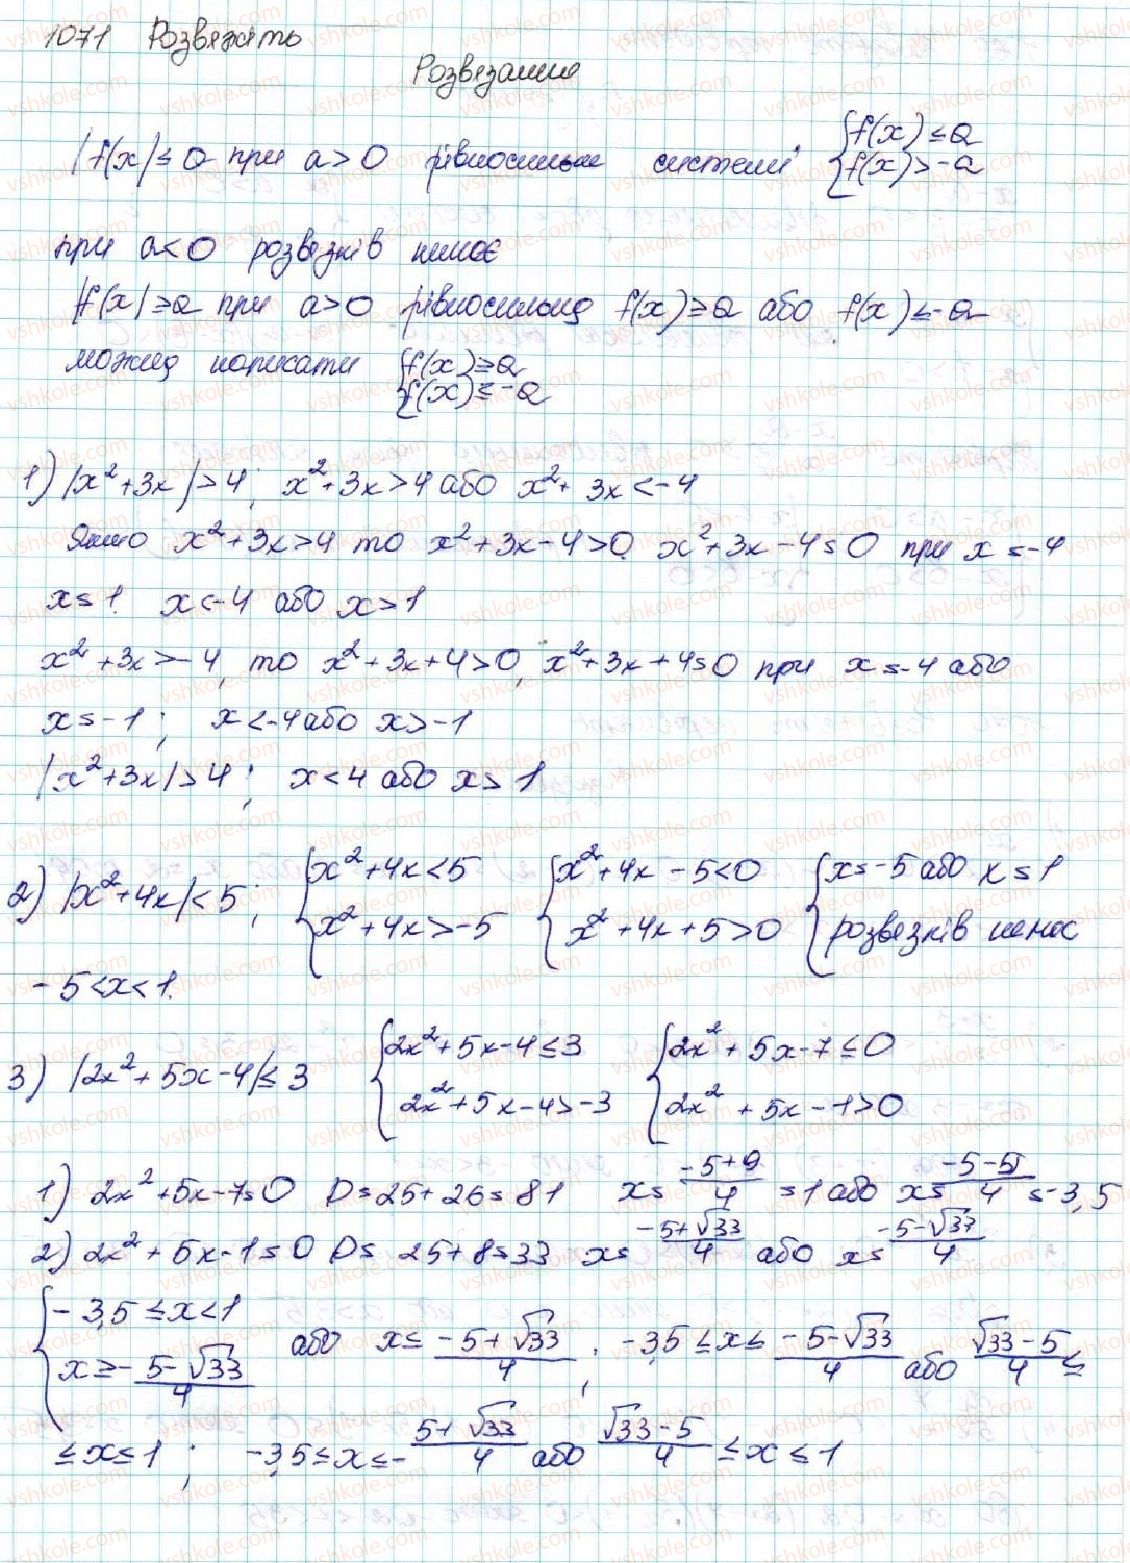 1071 Розвяжіть
Розвязання
|f(x)| ≤ a при a > 0 рівносильне системі {f(x) ≤ a
{f(x) > -a
при a < 0 розвязків немає
|f(x)| ≥ a при a > 0 рівносильно f(x) ≥ a або f(x) ≤ -a
можна написати {f(x) ≥ a
{f(x) ≤ -a
1) |x² + 3x| > 4; x² + 3x > 4 або x² + 3x < -4
Якщо x² + 3x > 4 то x² + 3x - 4 > 0 x² + 3x - 4 = 0 при x = -4
x = 1. x < -4 або x > 1
x² + 3x > -4, то x² + 3x + 4 > 0, x² + 3x + 4 = 0 при x = -4 або
x = -1; x < -4 або x > -1
|x² + 3x| > 4; x < 4 або x > 1
2) |x² + 4x| < 5; {x² + 4x < 5 {x² + 4x - 5 < 0 {x = -5 або x = 1
{x² + 4x > -5 {x² + 4x + 5 > 0 {розвязків немає
-5 < x < 1.
3) |2x² + 5x - 4| ≤ 3 {2x² + 5x - 4 ≤ 3 {2x² + 5x - 7 ≤ 0
{2x² + 5x - 4 > -3 {2x² + 5x - 1 > 0
1) 2x² + 5x - 7 = 0 D = 25 + 26 = 81 x = (-5+9)/4 = 1 або x = (-5-5)/4 = -3,5
2) 2x² + 5x - 1 = 0 D = 25 + 8 = 33 x = (-5+√33)/4 або x = (-5-√37)/4
{-3,5 ≤ x < 1
{x ≥ -(5-√33)/4 або x ≤ (-5+√33)/4; -3,5 ≤ x ≤ (-5-√33)/4 або (√33-5)/4 ≤
≤ x ≤ 1; -3,5 ≤ x ≤ -(5+√33)/4 або (√33-5)/4 ≤ x ≤ 1